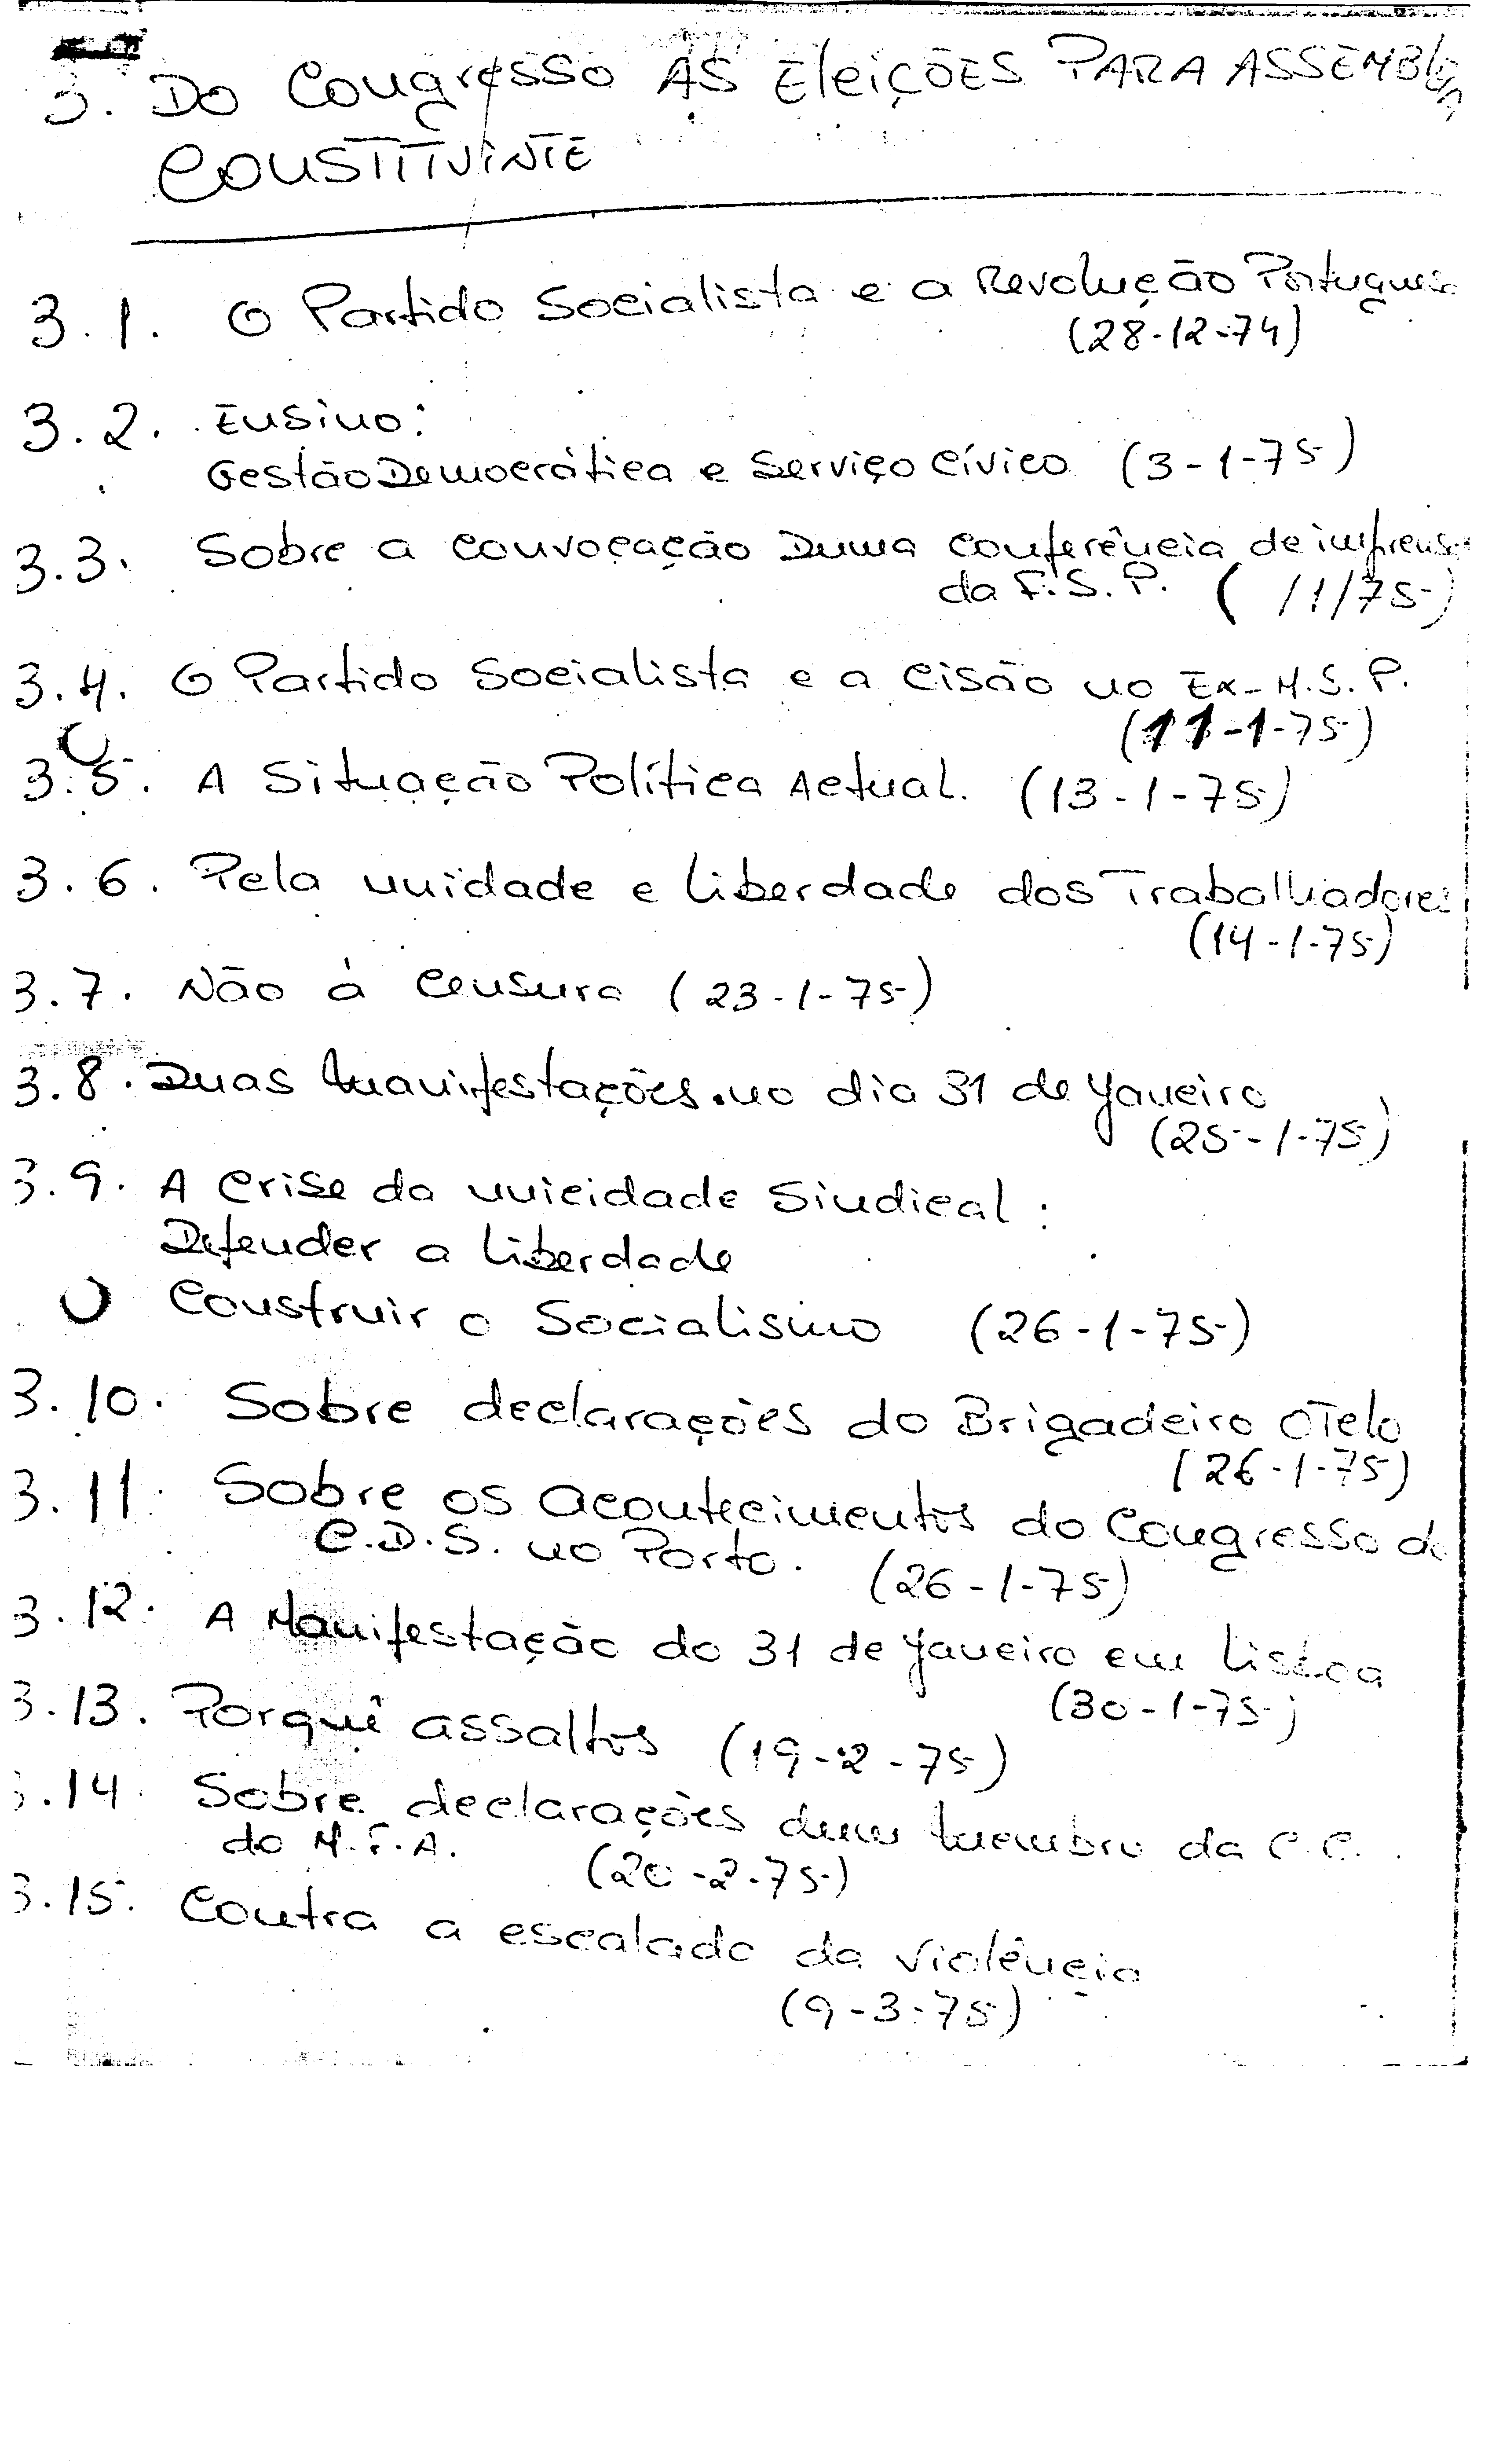 3. Do Congresso ÀS EleiçÕES PARA ASSEMBleA
CONSTITUINTE
3.1. O Partido Socialista e a Revolução Portuguesa
(28-12-74)
3.2. Ensino:
Gestão Democrática e Serviço Cívico (3-1-75)
3.3. Sobre a convocação Duma Conferência de imprensa
da F.S.P. ( /1/75)
3.4. O Partido Socialista e a cisão no Ex-M.S.P.
(11-1-75)
3.5. A Situação Política Actual. (13-1-75)
3.6. Pela unidade e liberdade dos Trabalhadores
(14-1-75)
3.7. Não à Censura (23-1-75)
3.8. Duas Manifestações no dia 31 de Janeiro
(25-1-75)
3.9. A crise da unicidade Sindical:
Defender a liberdade
Construir o Socialismo (26-1-75)
3.10. Sobre declarações do Brigadeiro OTelo
(26-1-75)
3.11. Sobre os acontecimentos do Congresso do
C.D.S. no Porto. (26-1-75)
3.12. A Manifestação do 31 de Janeiro em Lisboa
(30-1-75)
3.13. Porquê assaltos (19-2-75)
3.14. Sobre declarações dum membro da C.C.
do M.F.A. (20-2-75)
3.15. Contra a escalada da violência
(9-3-75)